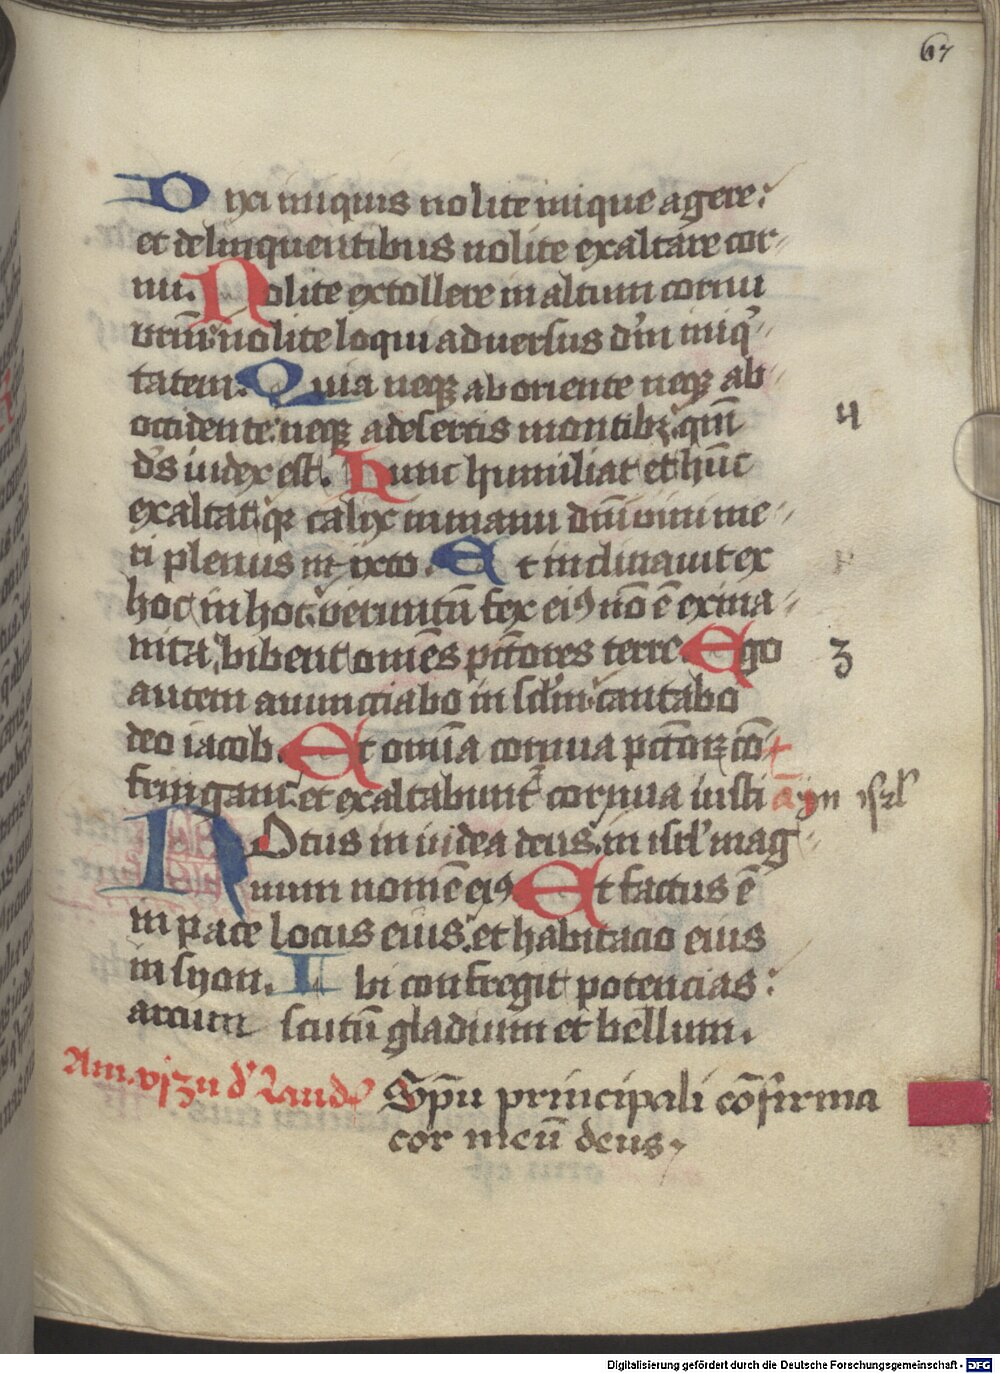 67
Dixi iniquis nolite inique agere:
et delinquentibus nolite exaltare cor
nu. Nolite extollere in altum cornu
vrm̄: nolite loqui aduersus dm̄ iniq
tatem. Quia neq₃ ab oriente neq₃ ab
occidente: neq₃ adesertis montib₃: qm̄
4
ds iudex est. Hunc humiliat et hūc
exaltat: q₃ calix in manu dnī vini me
ri plenus mixto. Et inclinauit ex
hoc in hoc: veruntū fex eiꝰ nō ē exina
nita, bibent om̄es pctōres terre. Ego
3
autem anunciabo in sclm: cantabo
deo iacob. Et om̄ia cornua pctōꝝ cō
fringam: et exaltabunt cornua iusti an̄ in isrl
Notus in iudea deus: in isrl mag
num nomē eiꝰ Et factus ē
in pace locus eius: et habitacio eius
in syon. Ibi confregit potencias:
arcum scutū gladium et bellum.
Spū principali cōfirma
cor meū deus.
Digitalisierung gefördert durch die Deutsche Forschungsgemeinschaft - DFG